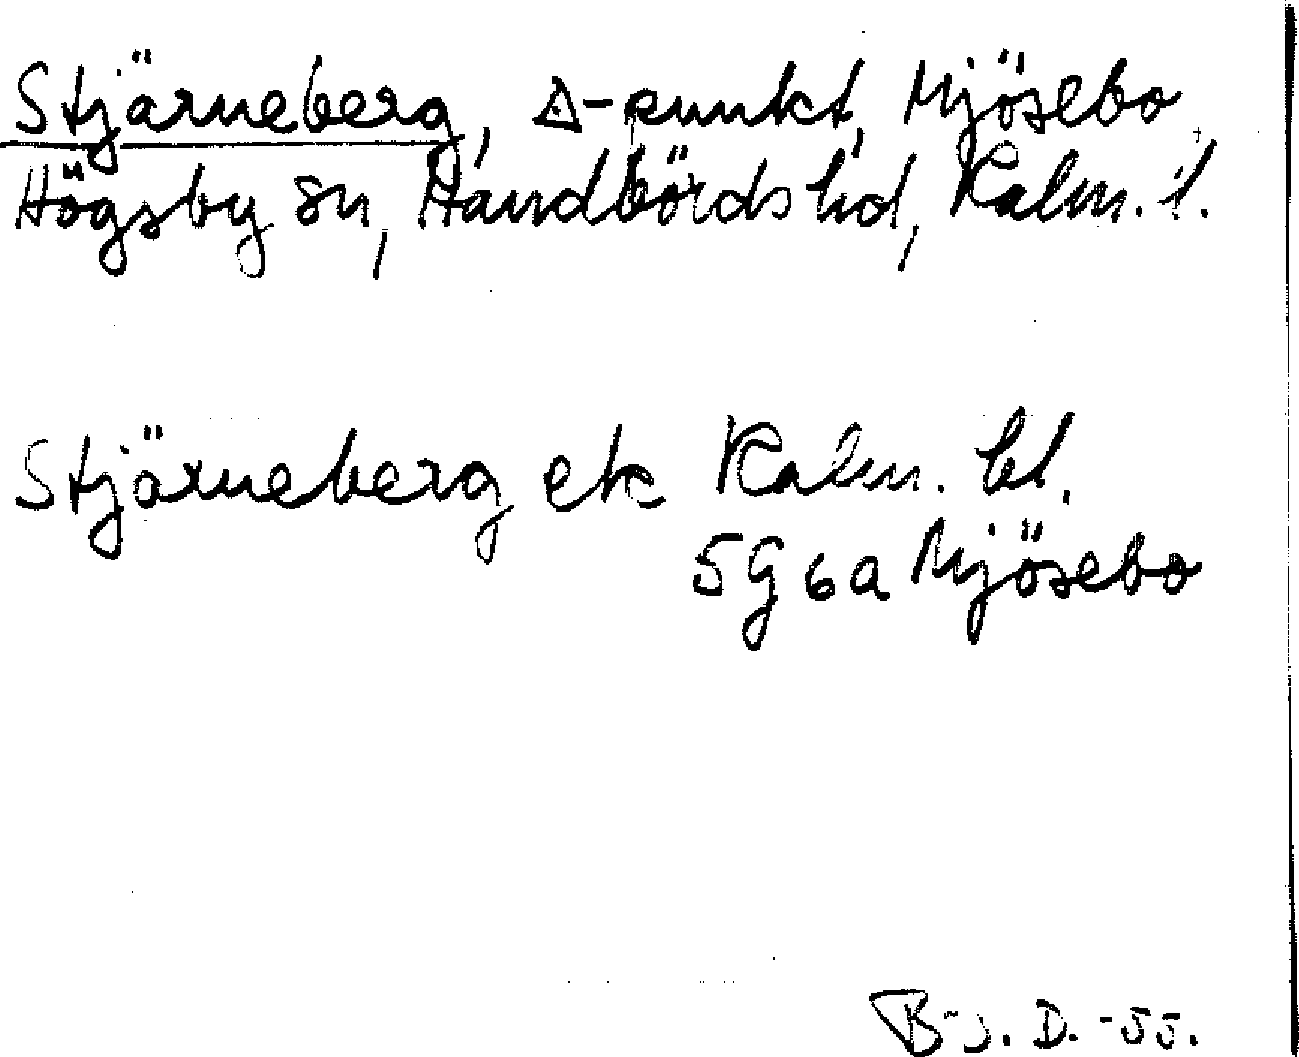 Stjärneberg, △-punkt, Mjösebo,
Högsby sn, Handbörds hd, Kalm. l.
Stjärneberg ek Kalm. bl.
5G6a Mjösebo
B-J. D. -55.